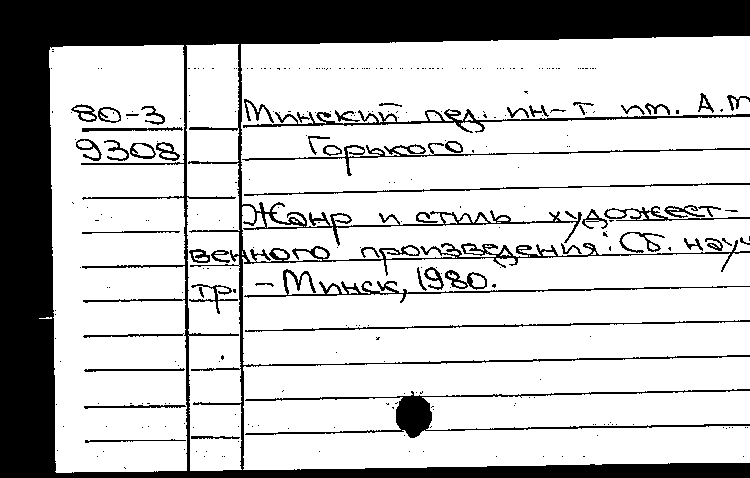 80-3 Минский пед. ин-т им. А.М
9308 Горького.
Жанр и стиль художест-
венного произведения: Сб. науч
тр. – Минск, 1980.